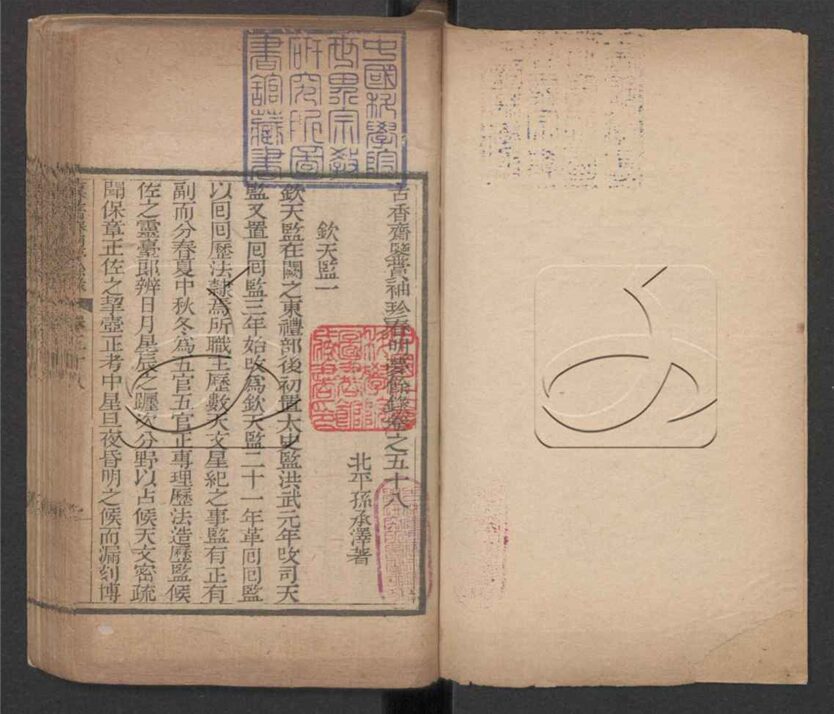 中國科學院
世界宗教
研究所圖
書館藏書
古香齋鑒賞袖珍春明夢餘錄卷之五十八
北平孫承澤著
欽天監一
欽天監在闕之東禮部後初置太史監洪武元年改司天
監又置回回監三年始改爲欽天監二十一年革回回監
以回回歷法隸焉所職主歷數天文星紀之事監有正有
副而分春夏中秋冬爲五官五官正專理歷法造歷監候
佐之靈臺郎辨日月星辰之躔次分野以占候天文密疏
聞保章正佐之挈壺正考中星旦夜昏明之候而漏刻博